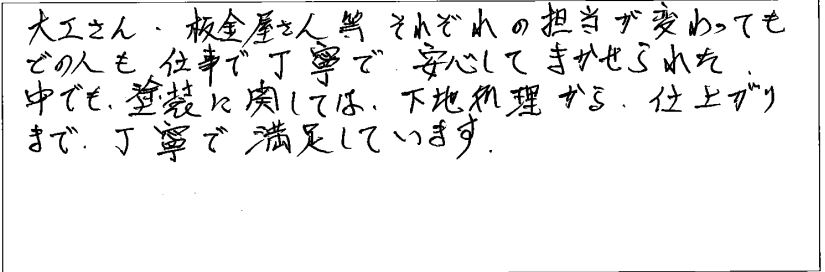 大工さん・板金屋さん等 それぞれの担当が変わっても
どの人も 仕事で丁寧で 安心してまかせられた.
中でも、塗装に関しては、下地処理から、仕上がり
まで、丁寧で満足しています.